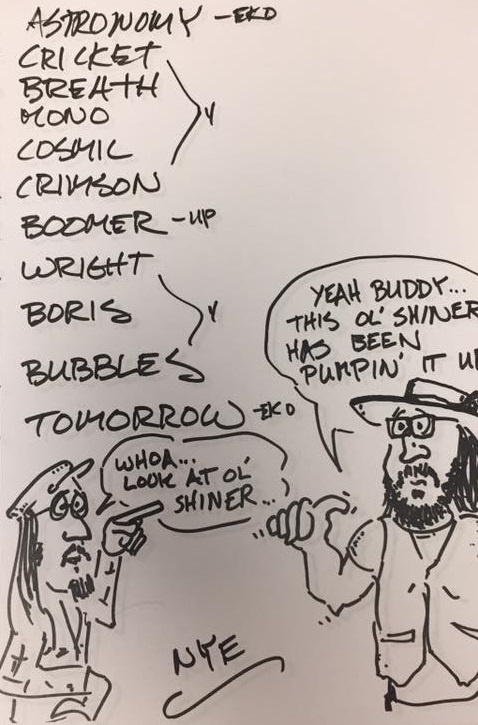 ASTRONOMY - EKO
CRICKET
BREATH
MONO
COSMIC
CRIMSON
BOOMER - UP
WRIGHT
BORIS
BUBBLES
TOMORROW - EKO
YEAH BUDDY...
THIS OL' SHINER
HAS BEEN
PUMPIN' IT UP
WHOA...
LOOK AT OL'
SHINER...
NYE